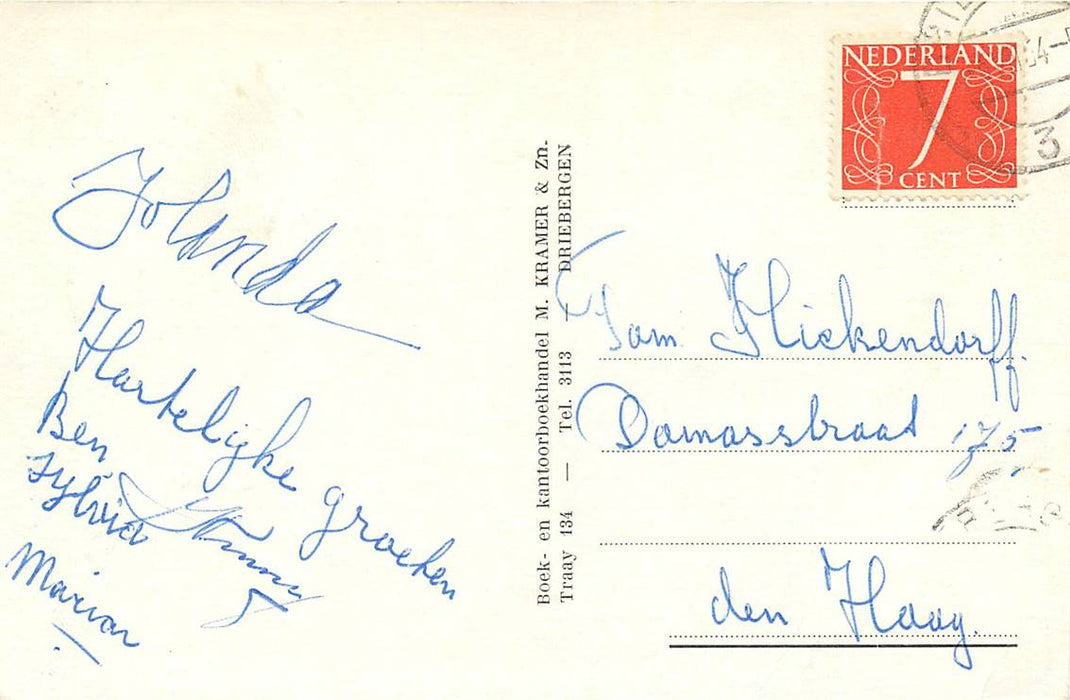 Yolanda
Hartelijke groeten
Ben,
Sylvia
Marian
Boek- en kantoorboekhandel M. KRAMER & Zn.
Traay 134 — Tel. 3113 — DRIEBERGEN
NEDERLAND
7
CENT
3
Fam. Hickendorff.
Damasstraat 175
den Haag.